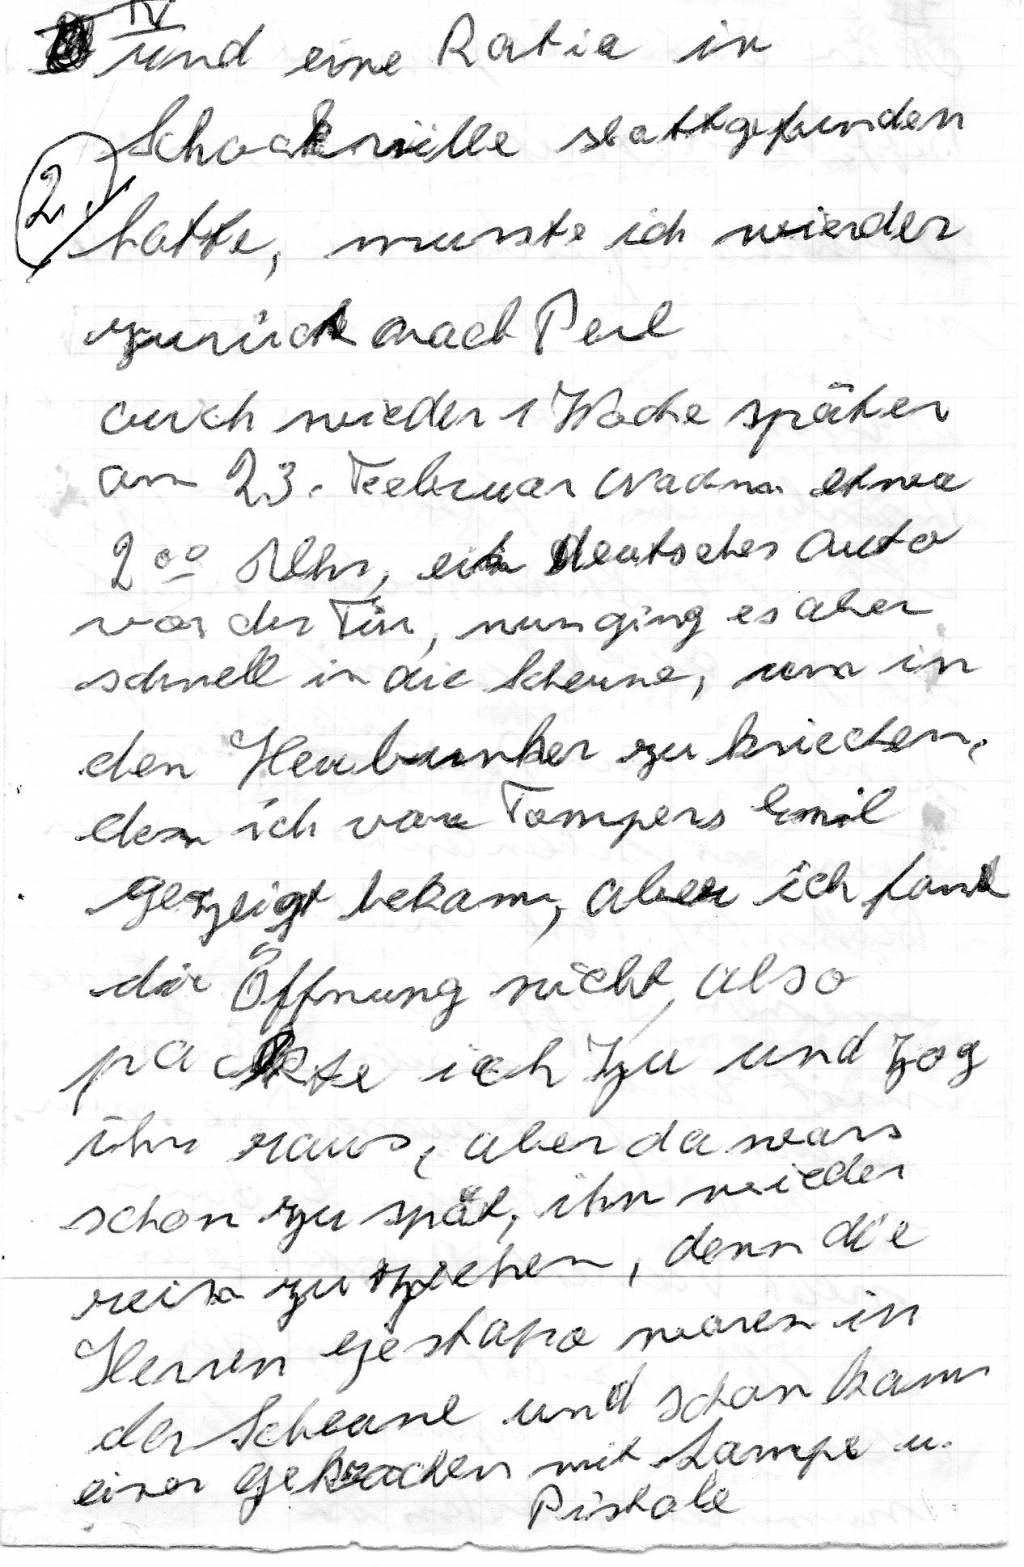 IV
und eine Ratia in
Schockville stattgefunden
2.)
hatte, musste ich wieder
zurück nach Perl
auch wieder 1 Woche später
am 23. Februar etwa
2oo Uhr, ein deutsches Auto
vor der Tür, nun ging es aber
schnell in die Scheune, um in
den Heubunker zu kriechen,
den ich von Tompers Emil
gezeigt bekam, aber ich fand
die Öffnung nicht, also
packte ich zu und zog
ihn raus, aber da wars
schon zu spät, ihn wieder
rein zu ziehen, denn die
Herren Gestapo waren in
der Scheune und schon kam
einer gekrochen mit Lampe u.
Pistole